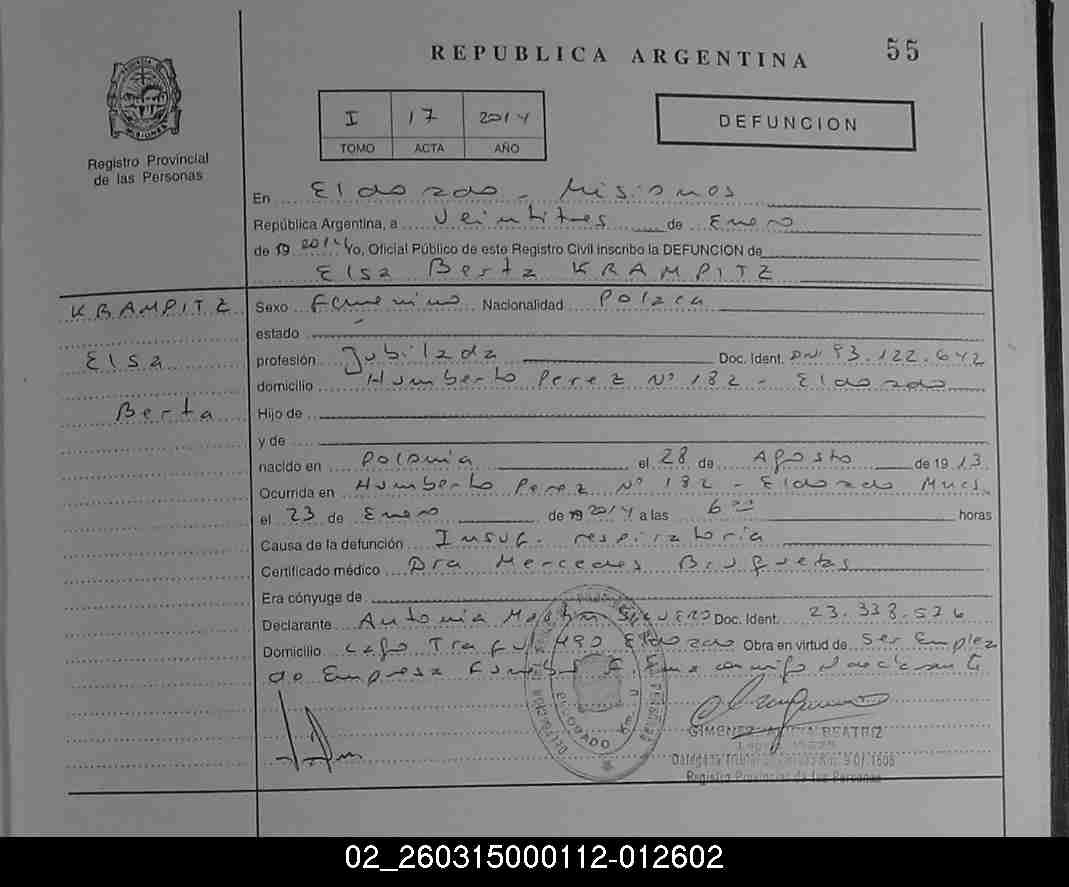 REPUBLICA ARGENTINA 55
Registro Provincial
de las Personas
I 17 2014
TOMO ACTA AÑO
DEFUNCION
En Eldorado - Misiones
República Argentina, a Veintitres de Enero
de 19 2014 Yo, Oficial Público de este Registro Civil inscribo la DEFUNCION de
Elsa Berta KRAMPITZ
KRAMPITZ
Elsa
Berta
Sexo Femenino Nacionalidad Polaca
estado
profesión Jubilada Doc. Ident. DNI 93.122.642
domicilio Humberto Perez Nº 182 - Eldorado
Hijo de
y de
nacido en Polonia el 28 de Agosto de 19 13
Ocurrida en Humberto Perez Nº 182 - Eldorado
el 23 de Enero de 19 2014 a las 6 00 horas
Causa de la defunción Insuf. respiratoria
Certificado médico Dra Mercedes
Era cónyuge de
Declarante Antonia Doc. Ident. 23.338.576
Domicilio Lago Eldorado Obra en virtud de Ser Emplea
do Empresa
ELDORADO
GIMENEZ BEATRIZ
Registro Provincial de las Personas
02_260315000112-012602